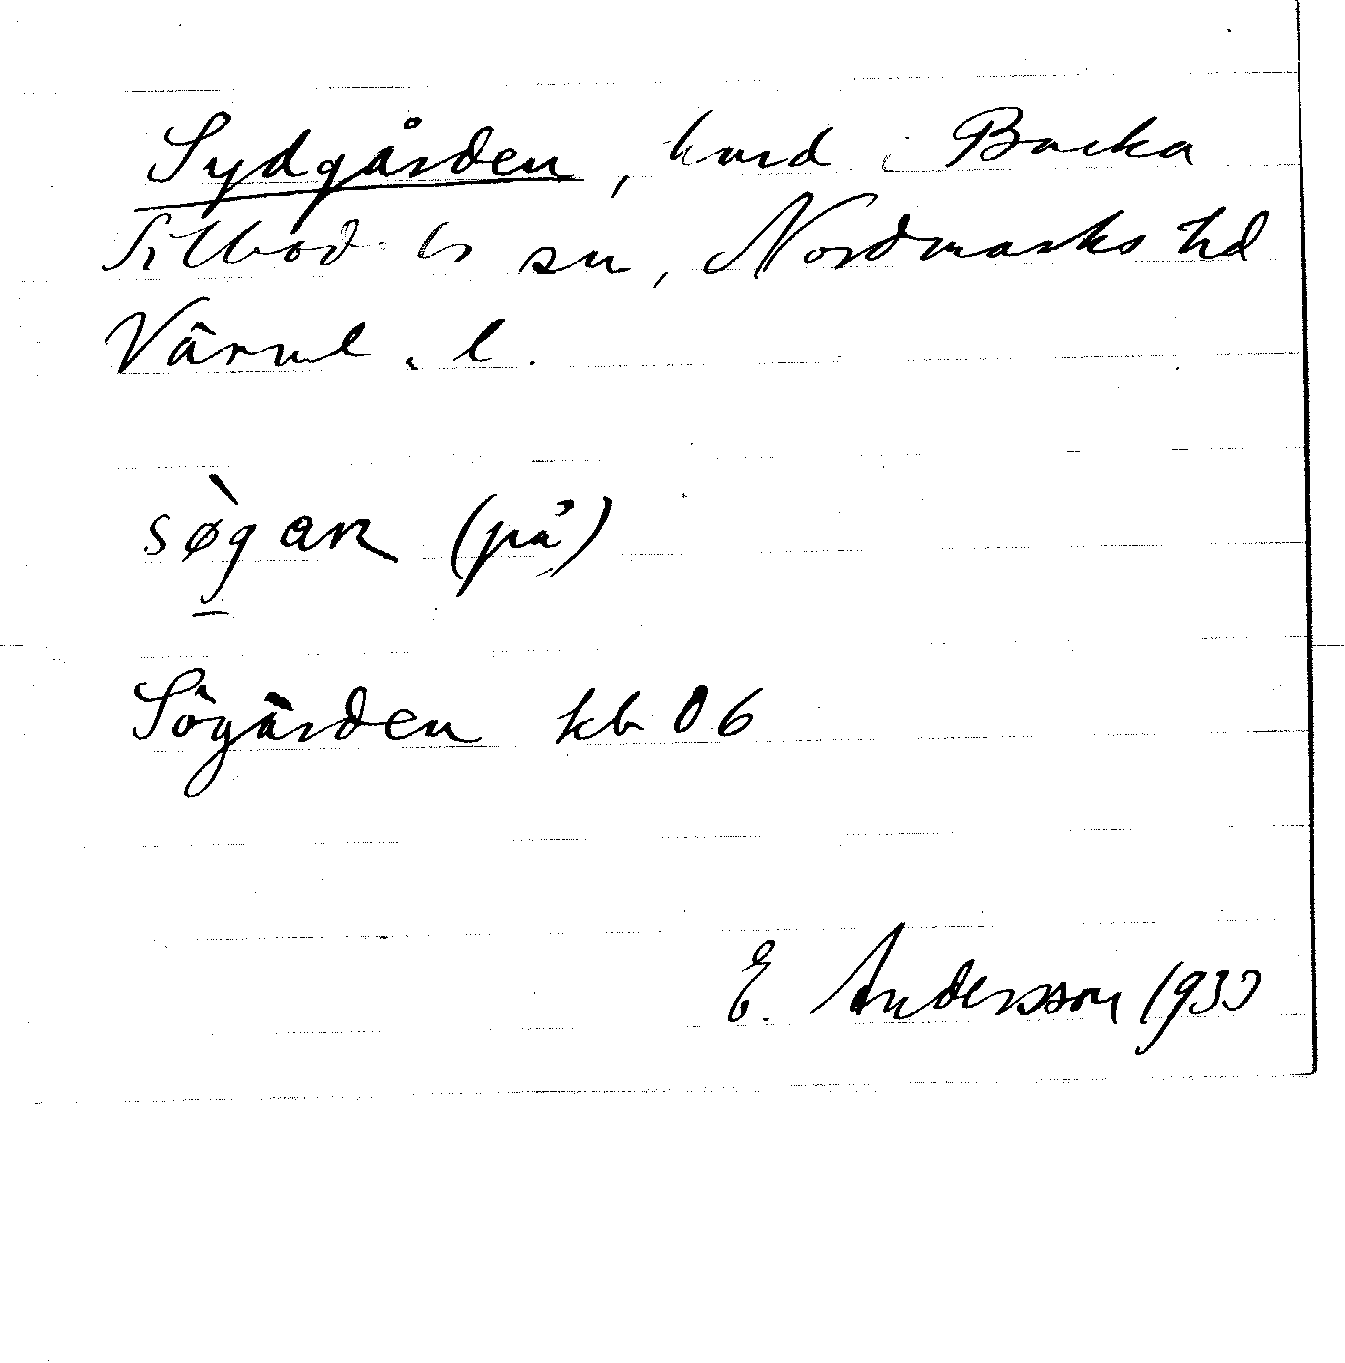 Sydgården, hmd i Backa
Sillbod. ls sn, Nordmarks hd
Värml. l.
søgan (på)
Sögården kb 06
E. Andersson 1933